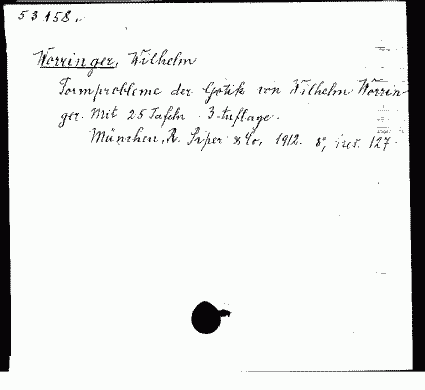 53158.
Worringer, Wilhelm
Formprobleme der Gotik von Wilhelm Worrin-
ger. Mit 25 Tafeln. 3. Auflage.
München, R. Piper & Co, 1912. 8°, 127.